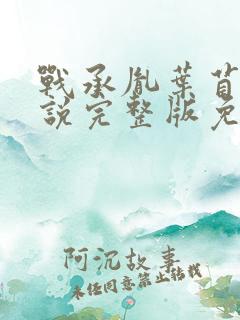 戰承胤葉
說完整版免
阿沉故事
未经同意禁止转载